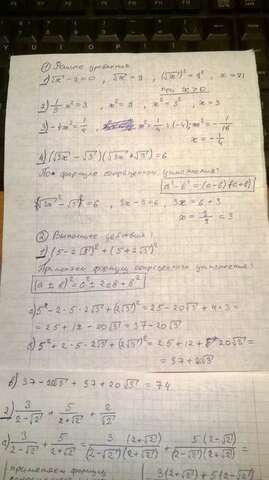 ① Решите уравнения:
1) √x − 9 = 0, √x = 9, (√x)² = 9², x = 81
при x ≥ 0
2) x² = 9, x² = 9, x² = 3², x = 3
3) −4x² = 1/4, x² = 1/4 : (−4), x² = −1/16
x = −1/4
4) (√3x − √3)(√3x + √3) = 6
По формуле сокращенного умножения:
a² − b² = (a − b)(a + b)
3x − 3 = 6, 3x = 6 + 3
x = 9/3 = 3
② Выполните действия:
1) (5 − 2√3)² + (5 + 2√3)²
формулу сокращенного умножения:
(a ± b)² = a² ± 2ab + b²
а) 5² − 2·5·2√3 + (2√3)² = 25 − 20√3 + 4·3 =
= 25 + 12 − 20√3 = 37 − 20√3
б) 5² + 2·5·2√3 + (2√3)² = 25 + 12 + 20√3 =
= 37 + 20√3
в) 37 − 20√3 + 37 + 20√3 = 74
2) 3/(2−√2) + 5/(2+√2) + 2/√2
а) 3/(2−√2) + 5/(2+√2) = 3(2+√2)/((2−√2)(2+√2)) + 5(2−√2)/((2−√2)(2+√2))
применяем формулу 3(2+√2) + 5(2−√2)